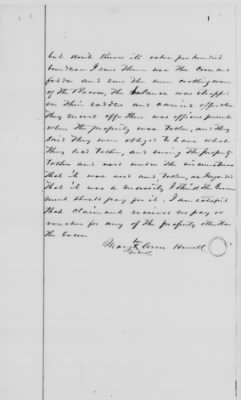 but don't know its value per hundred
I saw them use the corn and
fodder and saw the men
of the Bacon, the balance was
on their saddles and carried off when
they moved off there was officers present
when the property was taken, and they
said they were obliged to have what
they had taken, and seeing the property
taken and used under the circumstances
that it was used and taken, as
that it was a necessity I think the Govern
ment should pay for it. I am satisfied
that claimant receives no pay or
voucher for any of the property other than
the bacon
Mary Ann Howell
mark